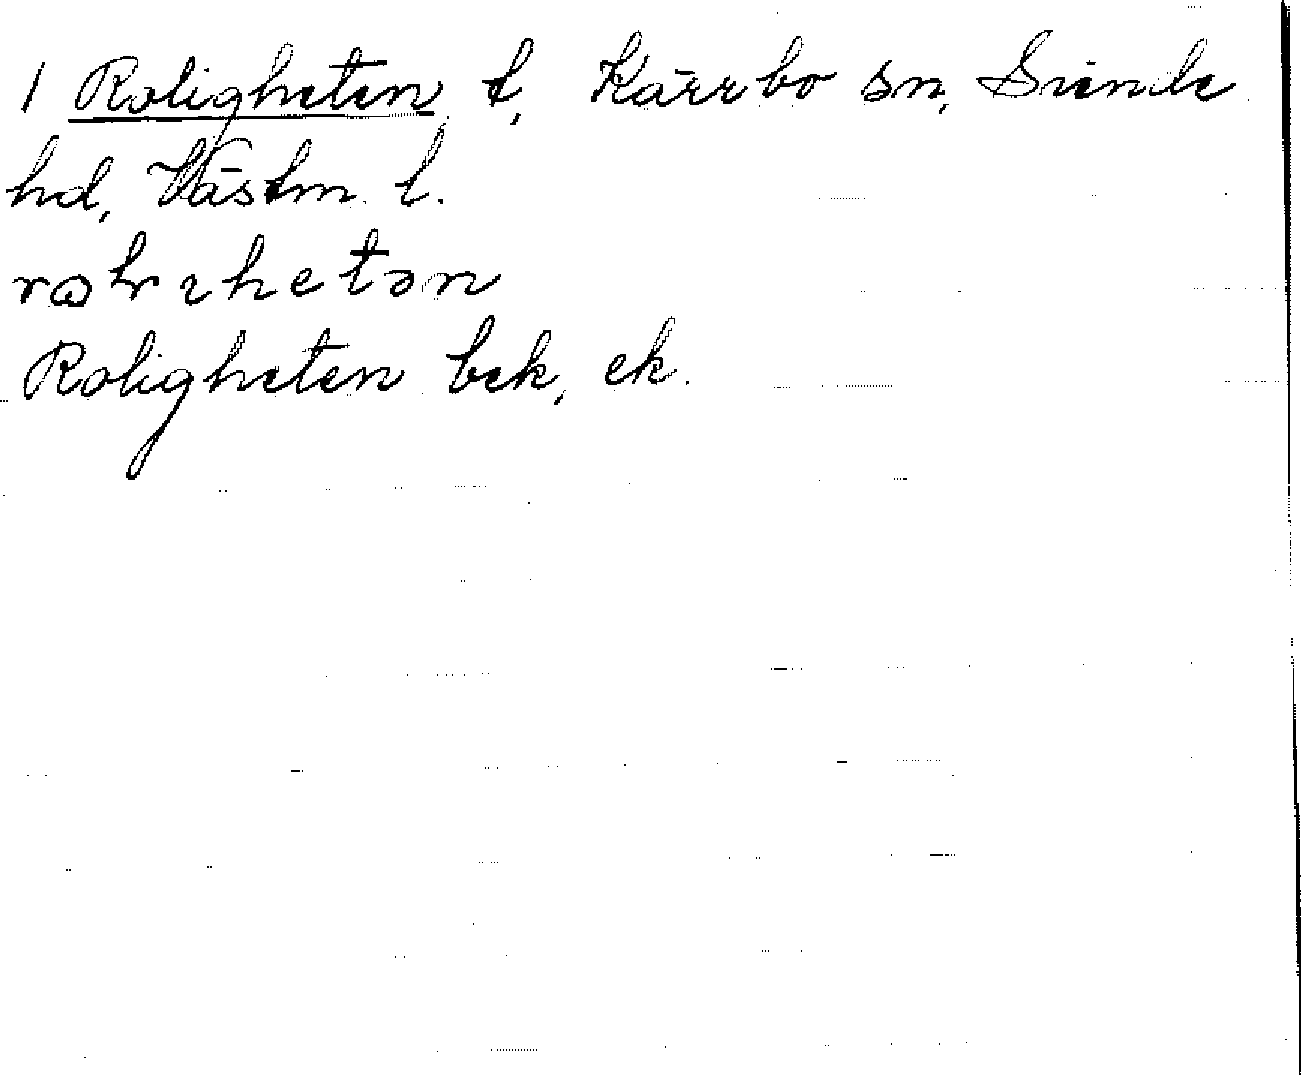 1 Roligheten t, Kärrbo sn, Siende
hd, Västm. l.
Roligheten bek, ek.